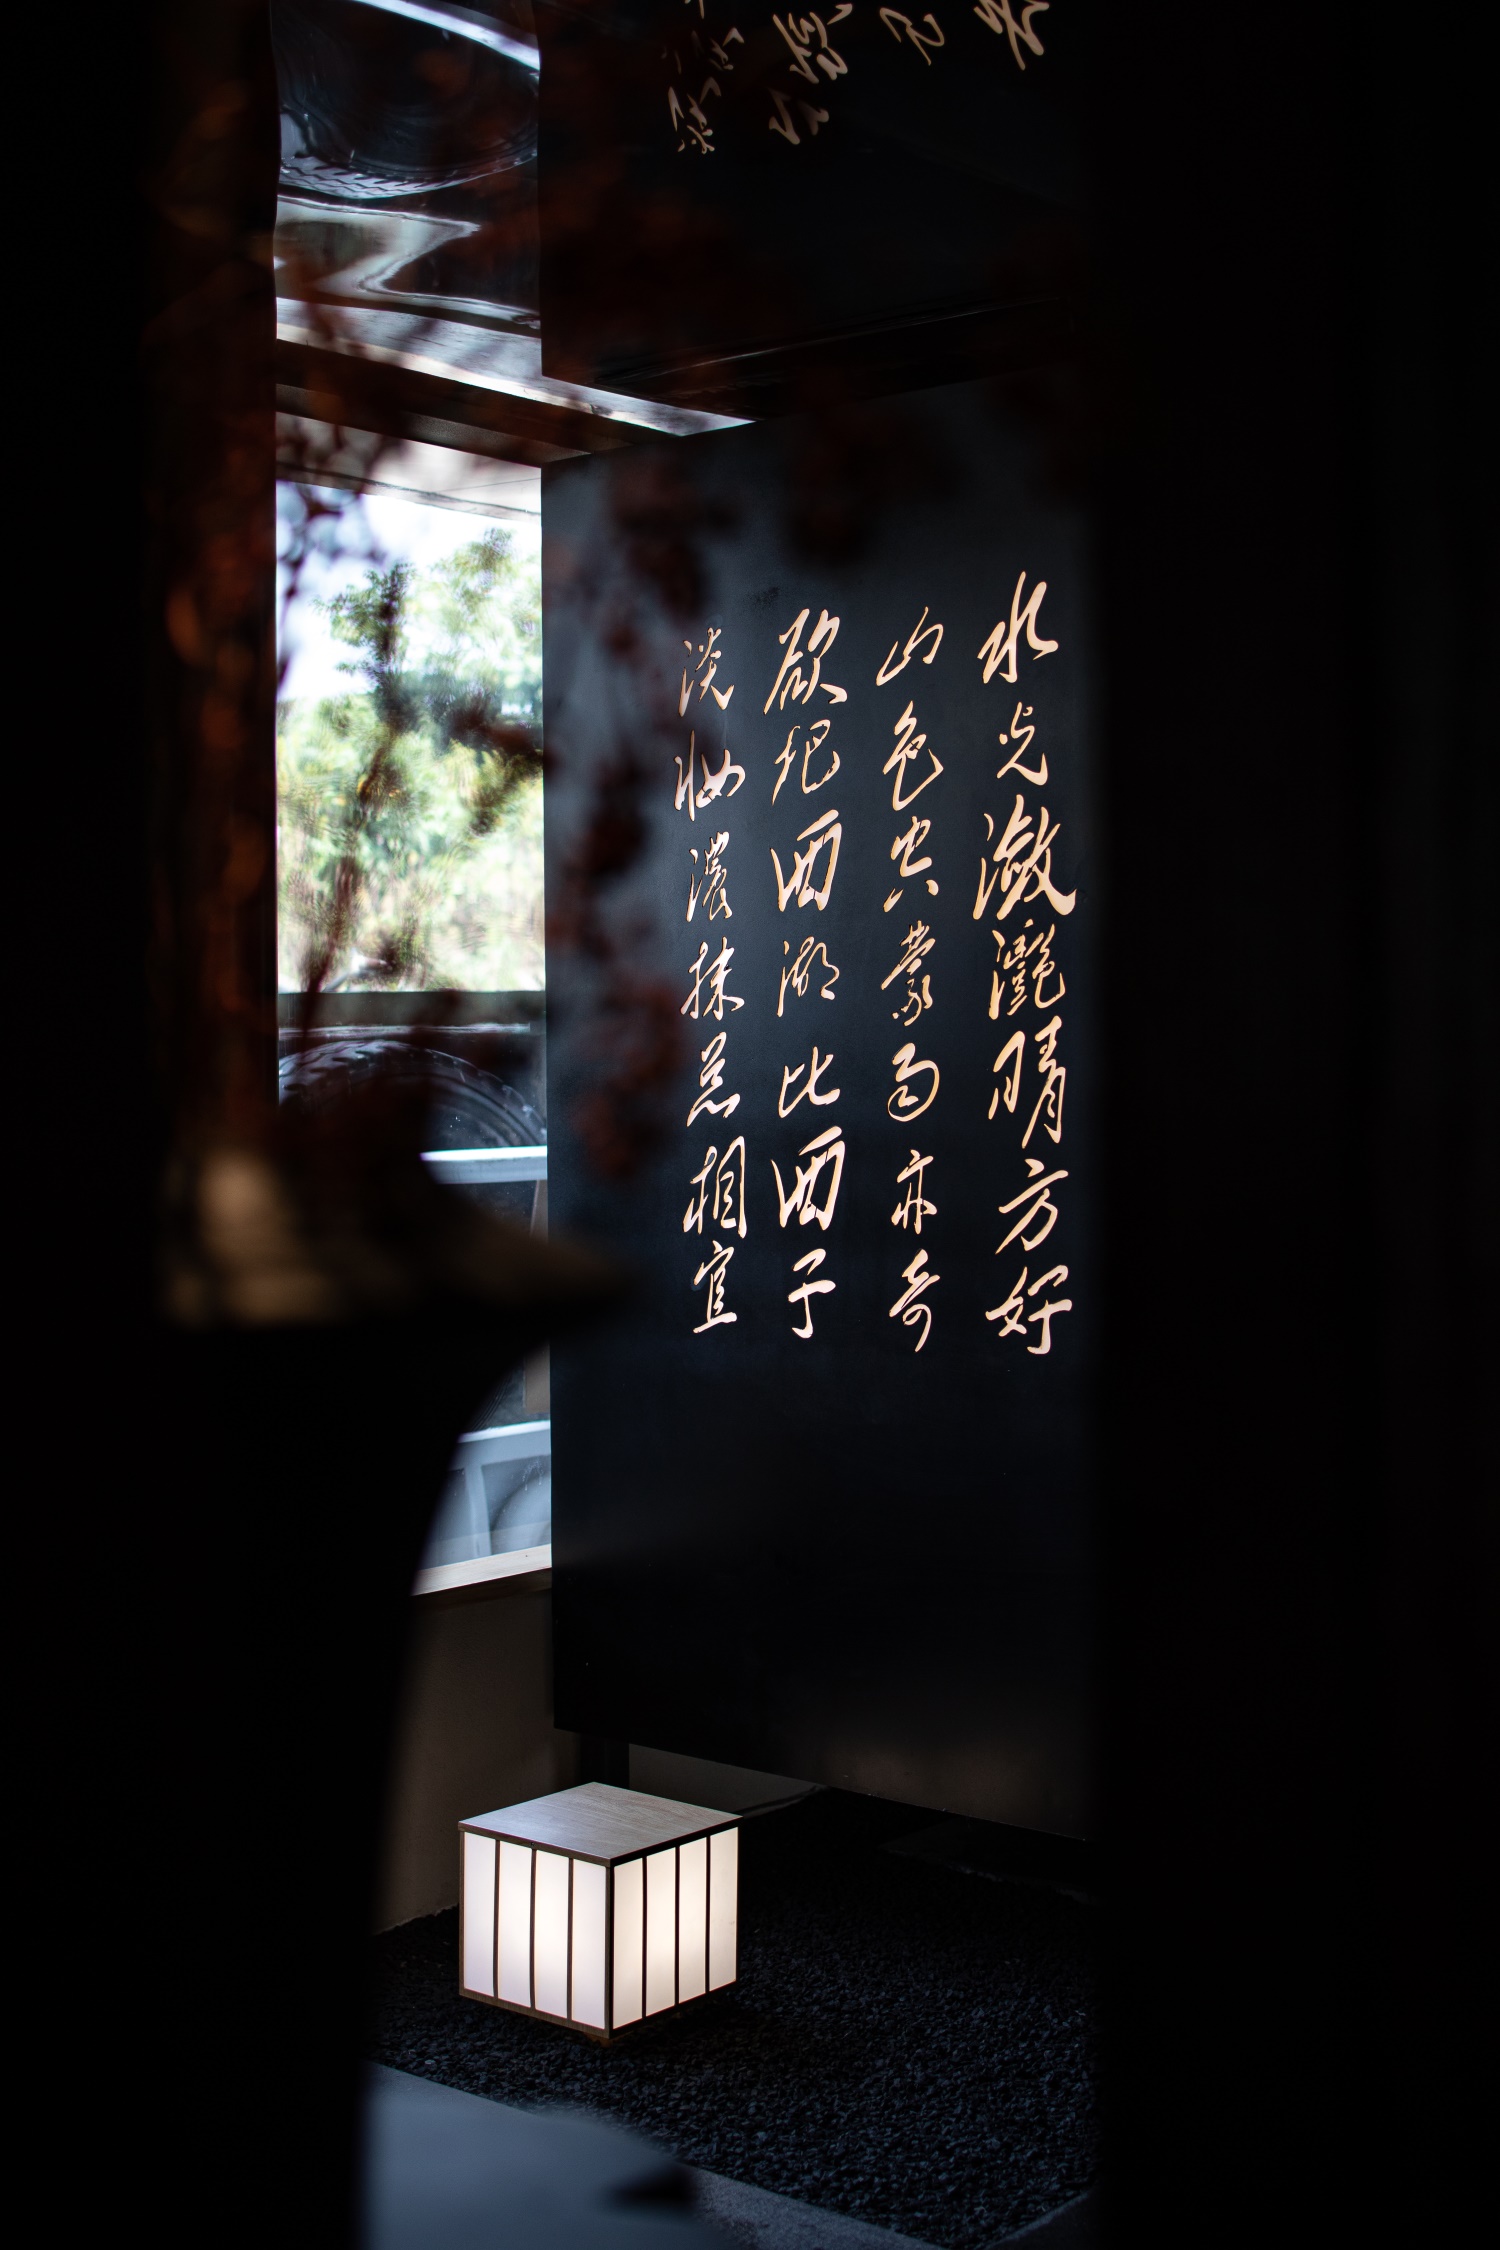 水光瀲灧晴方好
山色空蒙雨亦奇
欲把西湖比西子
淡妝濃抹总相宜